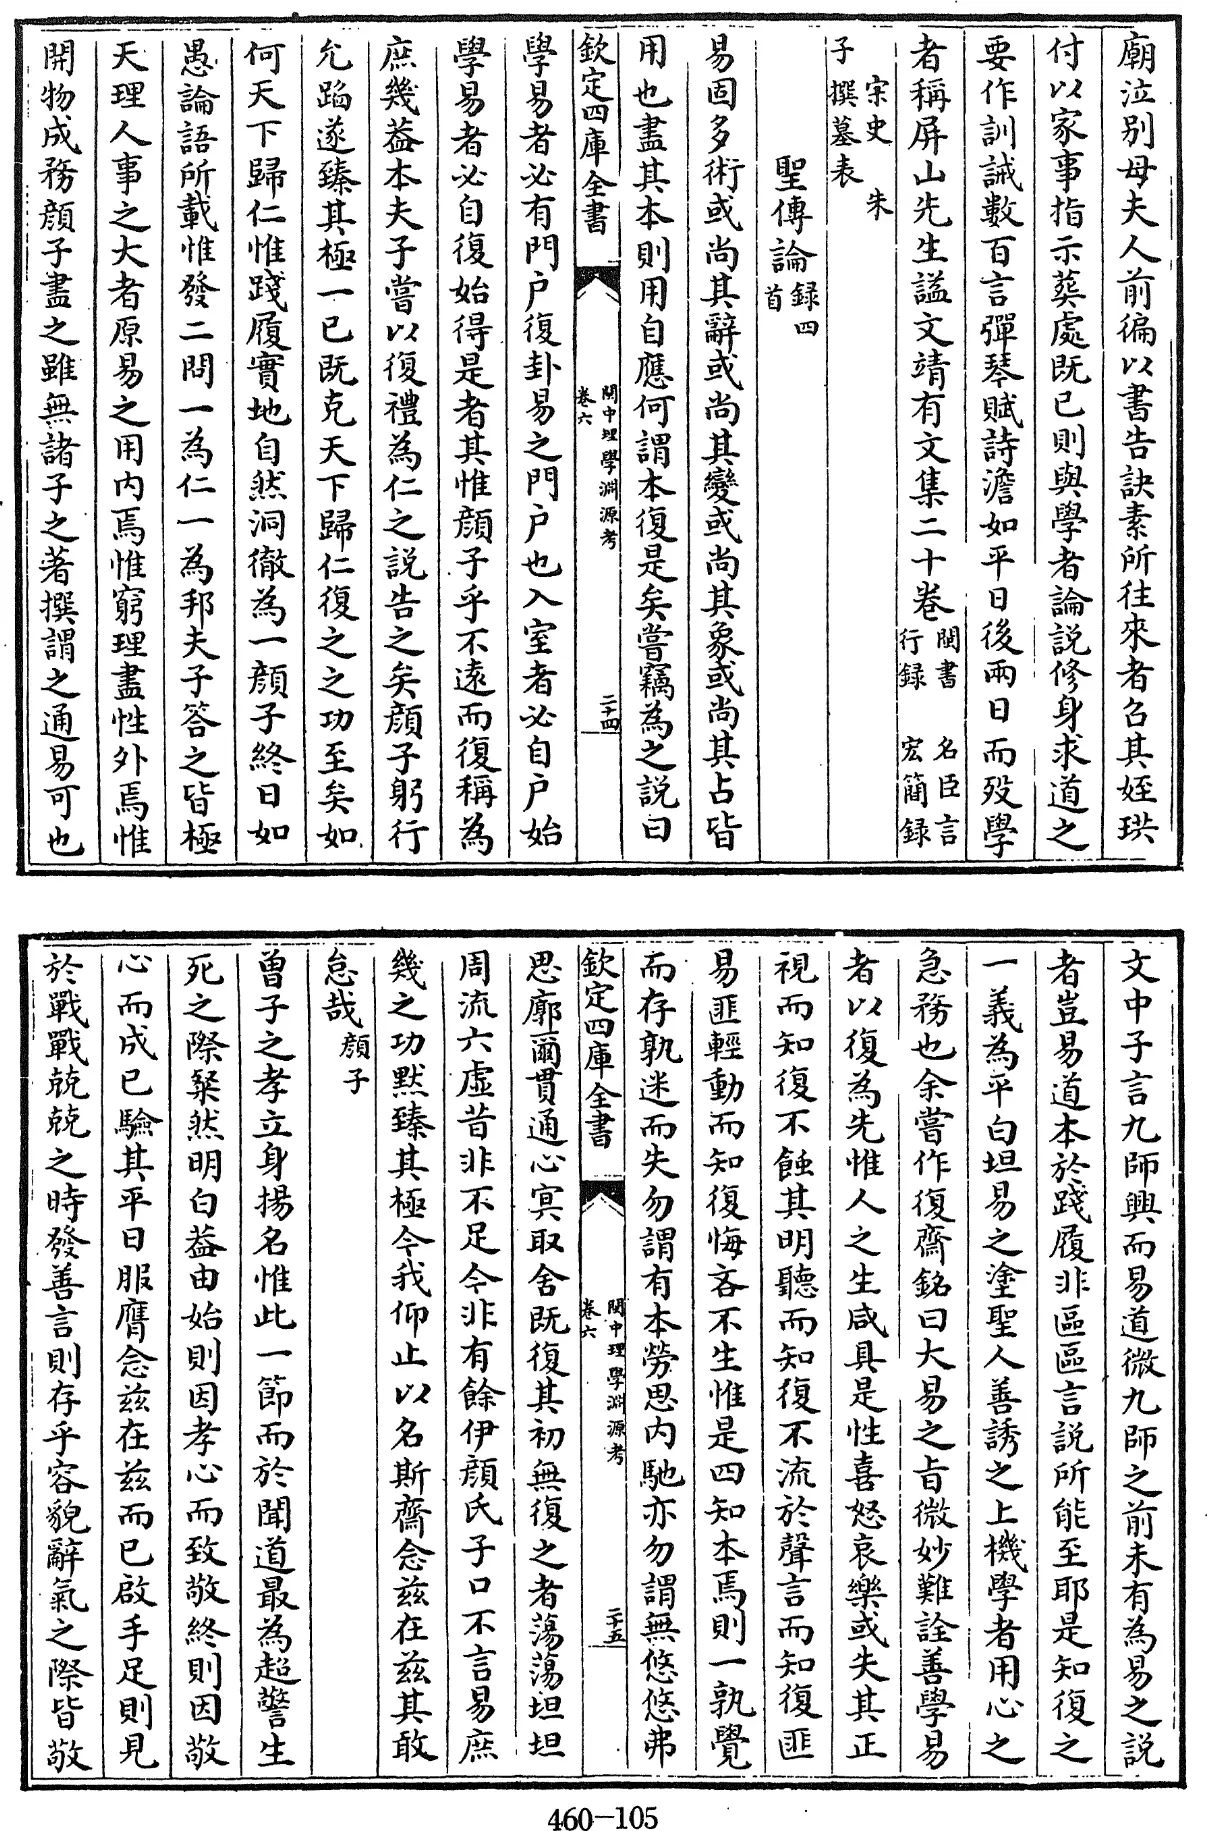 廟泣别母夫人前徧以書告訣素所往來者召其姪珙
付以家事指示葬處既已則與學者論説修身求道之
要作訓誡數百言彈琴賦詩澹如平日後兩日而殁學
者稱屏山先生諡文靖有文集二十卷閩書 名臣言
行録 宏簡録
宋史 朱
子撰墓表
聖傳論録四
首
易固多術或尚其辭或尚其變或尚其象或尚其占皆
用也盡其本則用自應何謂本復是矣嘗竊為之説曰
欽定四庫全書
閩中理學淵源考
卷六
二十四
學易者必有門户復卦易之門户也入室者必自户始
學易者必自復始得是者其惟顔子乎不遠而復稱為
庶幾葢本夫子嘗以復禮為仁之説告之矣顔子躬行
允蹈遂臻其極一已既克天下歸仁復之之功至矣如
何天下歸仁惟踐履實地自然洞徹為一顔子終日如
愚論語所載惟發二問一為仁一為邦夫子答之皆極
天理人事之大者原易之用内焉惟窮理盡性外焉惟
開物成務顔子盡之雖無諸子之著撰謂之通易可也
文中子言九師興而易道微九師之前未有為易之説
者豈易道本於踐履非區區言説所能至耶是知復之
一義為平白坦易之塗聖人善誘之上機學者用心之
急務也余嘗作復齋銘曰大易之旨微妙難詮善學易
者以復為先惟人之生咸具是性喜怒哀樂或失其正
視而知復不蝕其明聽而知復不流於聲言而知復匪
易匪輕動而知復悔吝不生惟是四知本焉則一孰覺
而存孰迷而失勿謂有本勞思内馳亦勿謂無悠悠弗
欽定四庫全書
閩中理學淵源考
卷六
二十五
思廓爾貫通心冥取舍既復其初無復之者蕩蕩坦坦
周流六虚昔非不足今非有餘伊顔氏子口不言易庶
幾之功默臻其極今我仰止以名斯齋念兹在兹其敢
怠哉顔子
曽子之孝立身揚名惟此一節而於聞道最為超警生
死之際粲然明白葢由始則因孝心而致敬終則因敬
心而成已驗其平日服膺念兹在兹而已啟手足則見
於戰戰兢兢之時發善言則存乎容貌辭氣之際皆敬
460-105